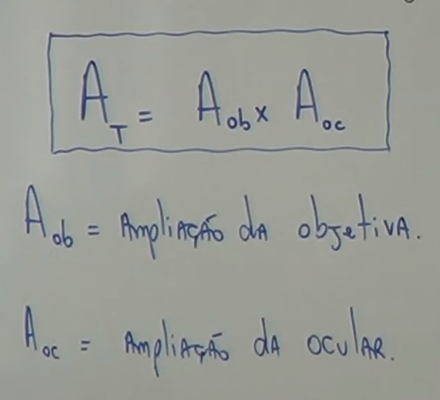 A_T = A_ob x A_oc
A_ob = Ampliação da objetiva.
A_oc = Ampliação da ocular.